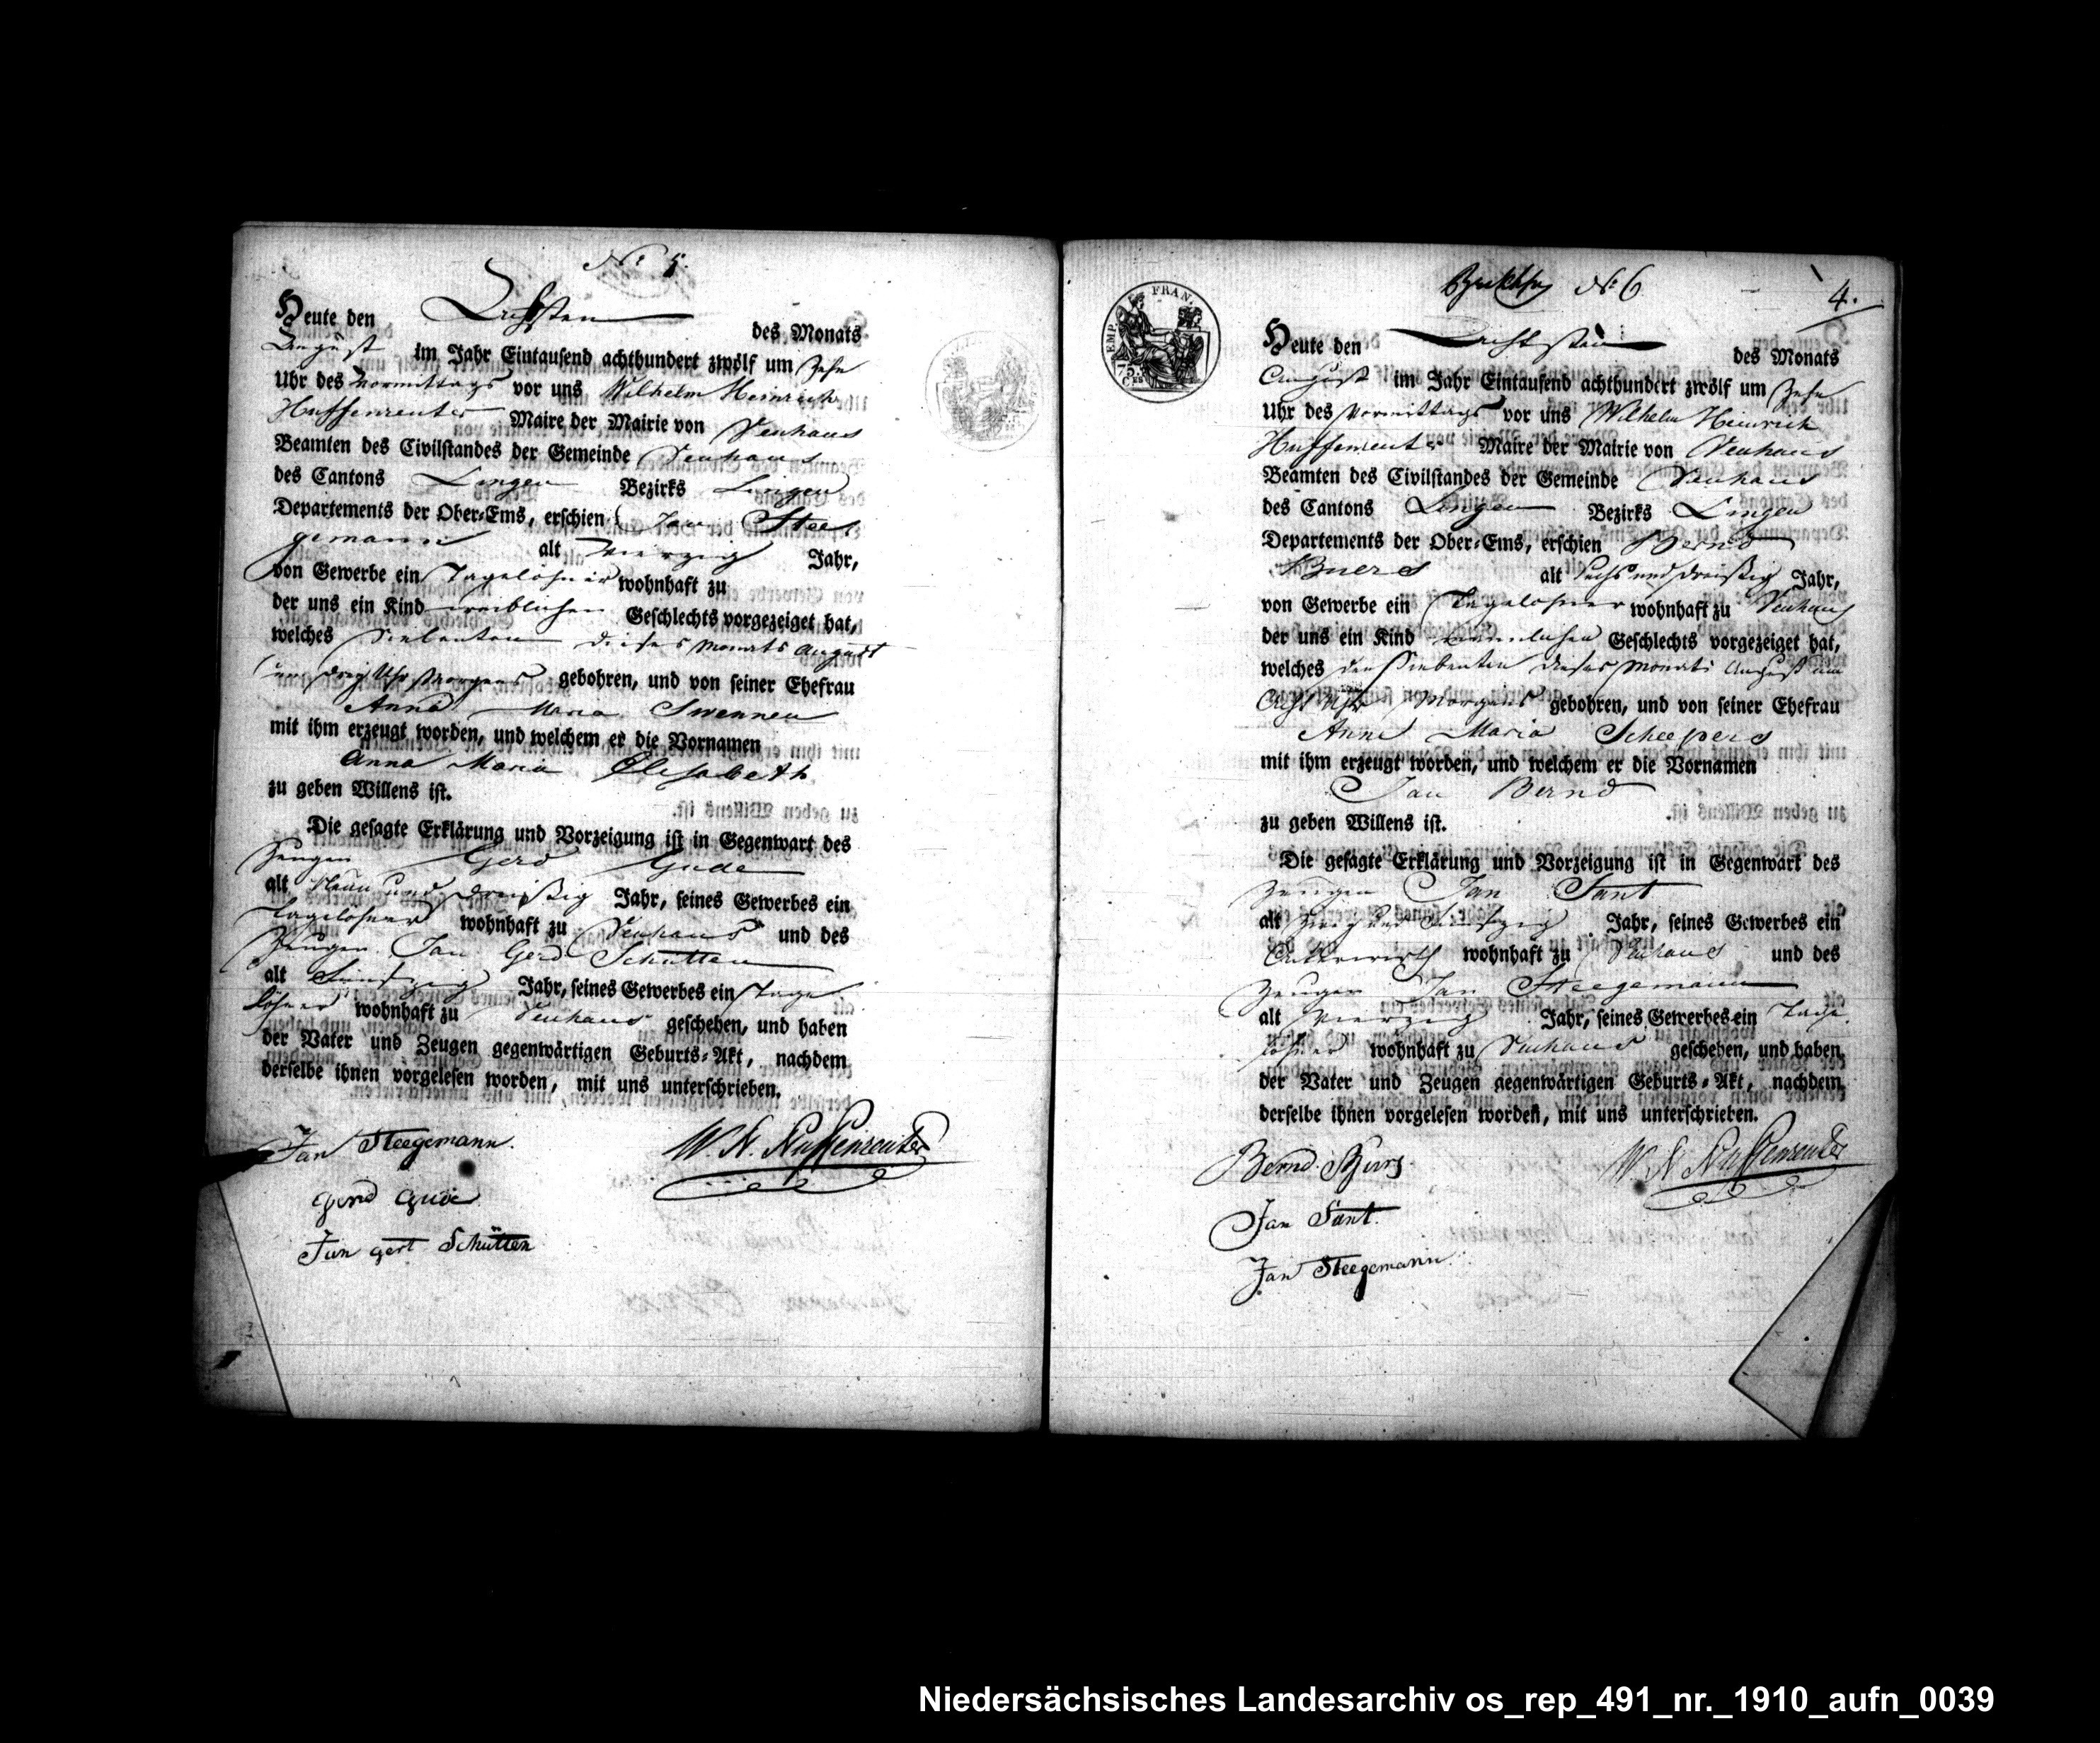 No 5.
Heute den Achten des Monats
August im Jahr Eintausend achthundert zwölf um Zehn
Uhr des Vormittags vor uns Wilhelm Heinrich
Huffenreuter Maire der Mairie von Venhaus
Beamten des Civilstandes der Gemeinde Venhaus
des Cantons Lingen Bezirks Lingen
Departements der Ober-Ems, erschien Jan Stee
gemann alt vierzig Jahr,
von Gewerbe ein Tagelöhner wohnhaft zu
der uns ein Kind weiblichen Geschlechts vorgezeiget hat,
welches siebenten dieses Monats August
um drey Uhr Morgens gebohren, und von seiner Ehefrau
Anna Maria Swennen
mit ihm erzeugt worden, und welchem er die Vornamen
Anna Maria Elisabeth
zu geben Willens ist.
Die gesagte Erklärung und Vorzeigung ist in Gegenwart des
Zeugen Gerd Gude
alt Neun und dreißig Jahr, seines Gewerbes ein
Tagelöhner wohnhaft zu Venhaus und des
Zeugen Jan Gerd Schutten
alt funfzig Jahr, seines Gewerbes ein Tage
löhner wohnhaft zu Venhaus geschehen, und haben
der Vater und Zeugen gegenwärtigen Geburts-Akt, nachdem
derselbe ihnen vorgelesen worden, mit uns unterschrieben.
Jan Steegemann. W. H. Huffenreuter
gerd gude
Jan gert Schütten
EMP. FRAN.
75. CES
No 6 4.
Heute den Achten des Monats
August im Jahr Eintausend achthundert zwölf um Zehn
Uhr des Vormittags vor uns Wilhelm Heinrich
Huffenreuter Maire der Mairie von Venhaus
Beamten des Civilstandes der Gemeinde Venhaus
des Cantons Lingen Bezirks Lingen
Departements der Ober-Ems, erschien Bernd
Buers alt sechs und dreißig Jahr,
von Gewerbe ein Tagelöhner wohnhaft zu Venhaus
der uns ein Kind männlichen Geschlechts vorgezeiget hat,
welches den siebenten dieses Monats August um
Acht Uhr Morgens gebohren, und von seiner Ehefrau
Anna Maria Scheepers
mit ihm erzeugt worden, und welchem er die Vornamen
Jan Bernd
zu geben Willens ist.
Die gesagte Erklärung und Vorzeigung ist in Gegenwart des
Zeugen Jan Sant
alt zwey und funfzig Jahr, seines Gewerbes ein
Ackerwirth wohnhaft zu Venhaus und des
Zeugen Jan Steegemann
alt vierzig Jahr, seines Gewerbes ein Tage
löhner wohnhaft zu Venhaus geschehen, und haben
der Vater und Zeugen gegenwärtigen Geburts-Akt, nachdem
derselbe ihnen vorgelesen worden, mit uns unterschrieben.
Bernd Burs W H Huffenreuter
Jan Sant.
Jan Steegemann
Niedersächsisches Landesarchiv os_rep_491_nr._1910_aufn_0039